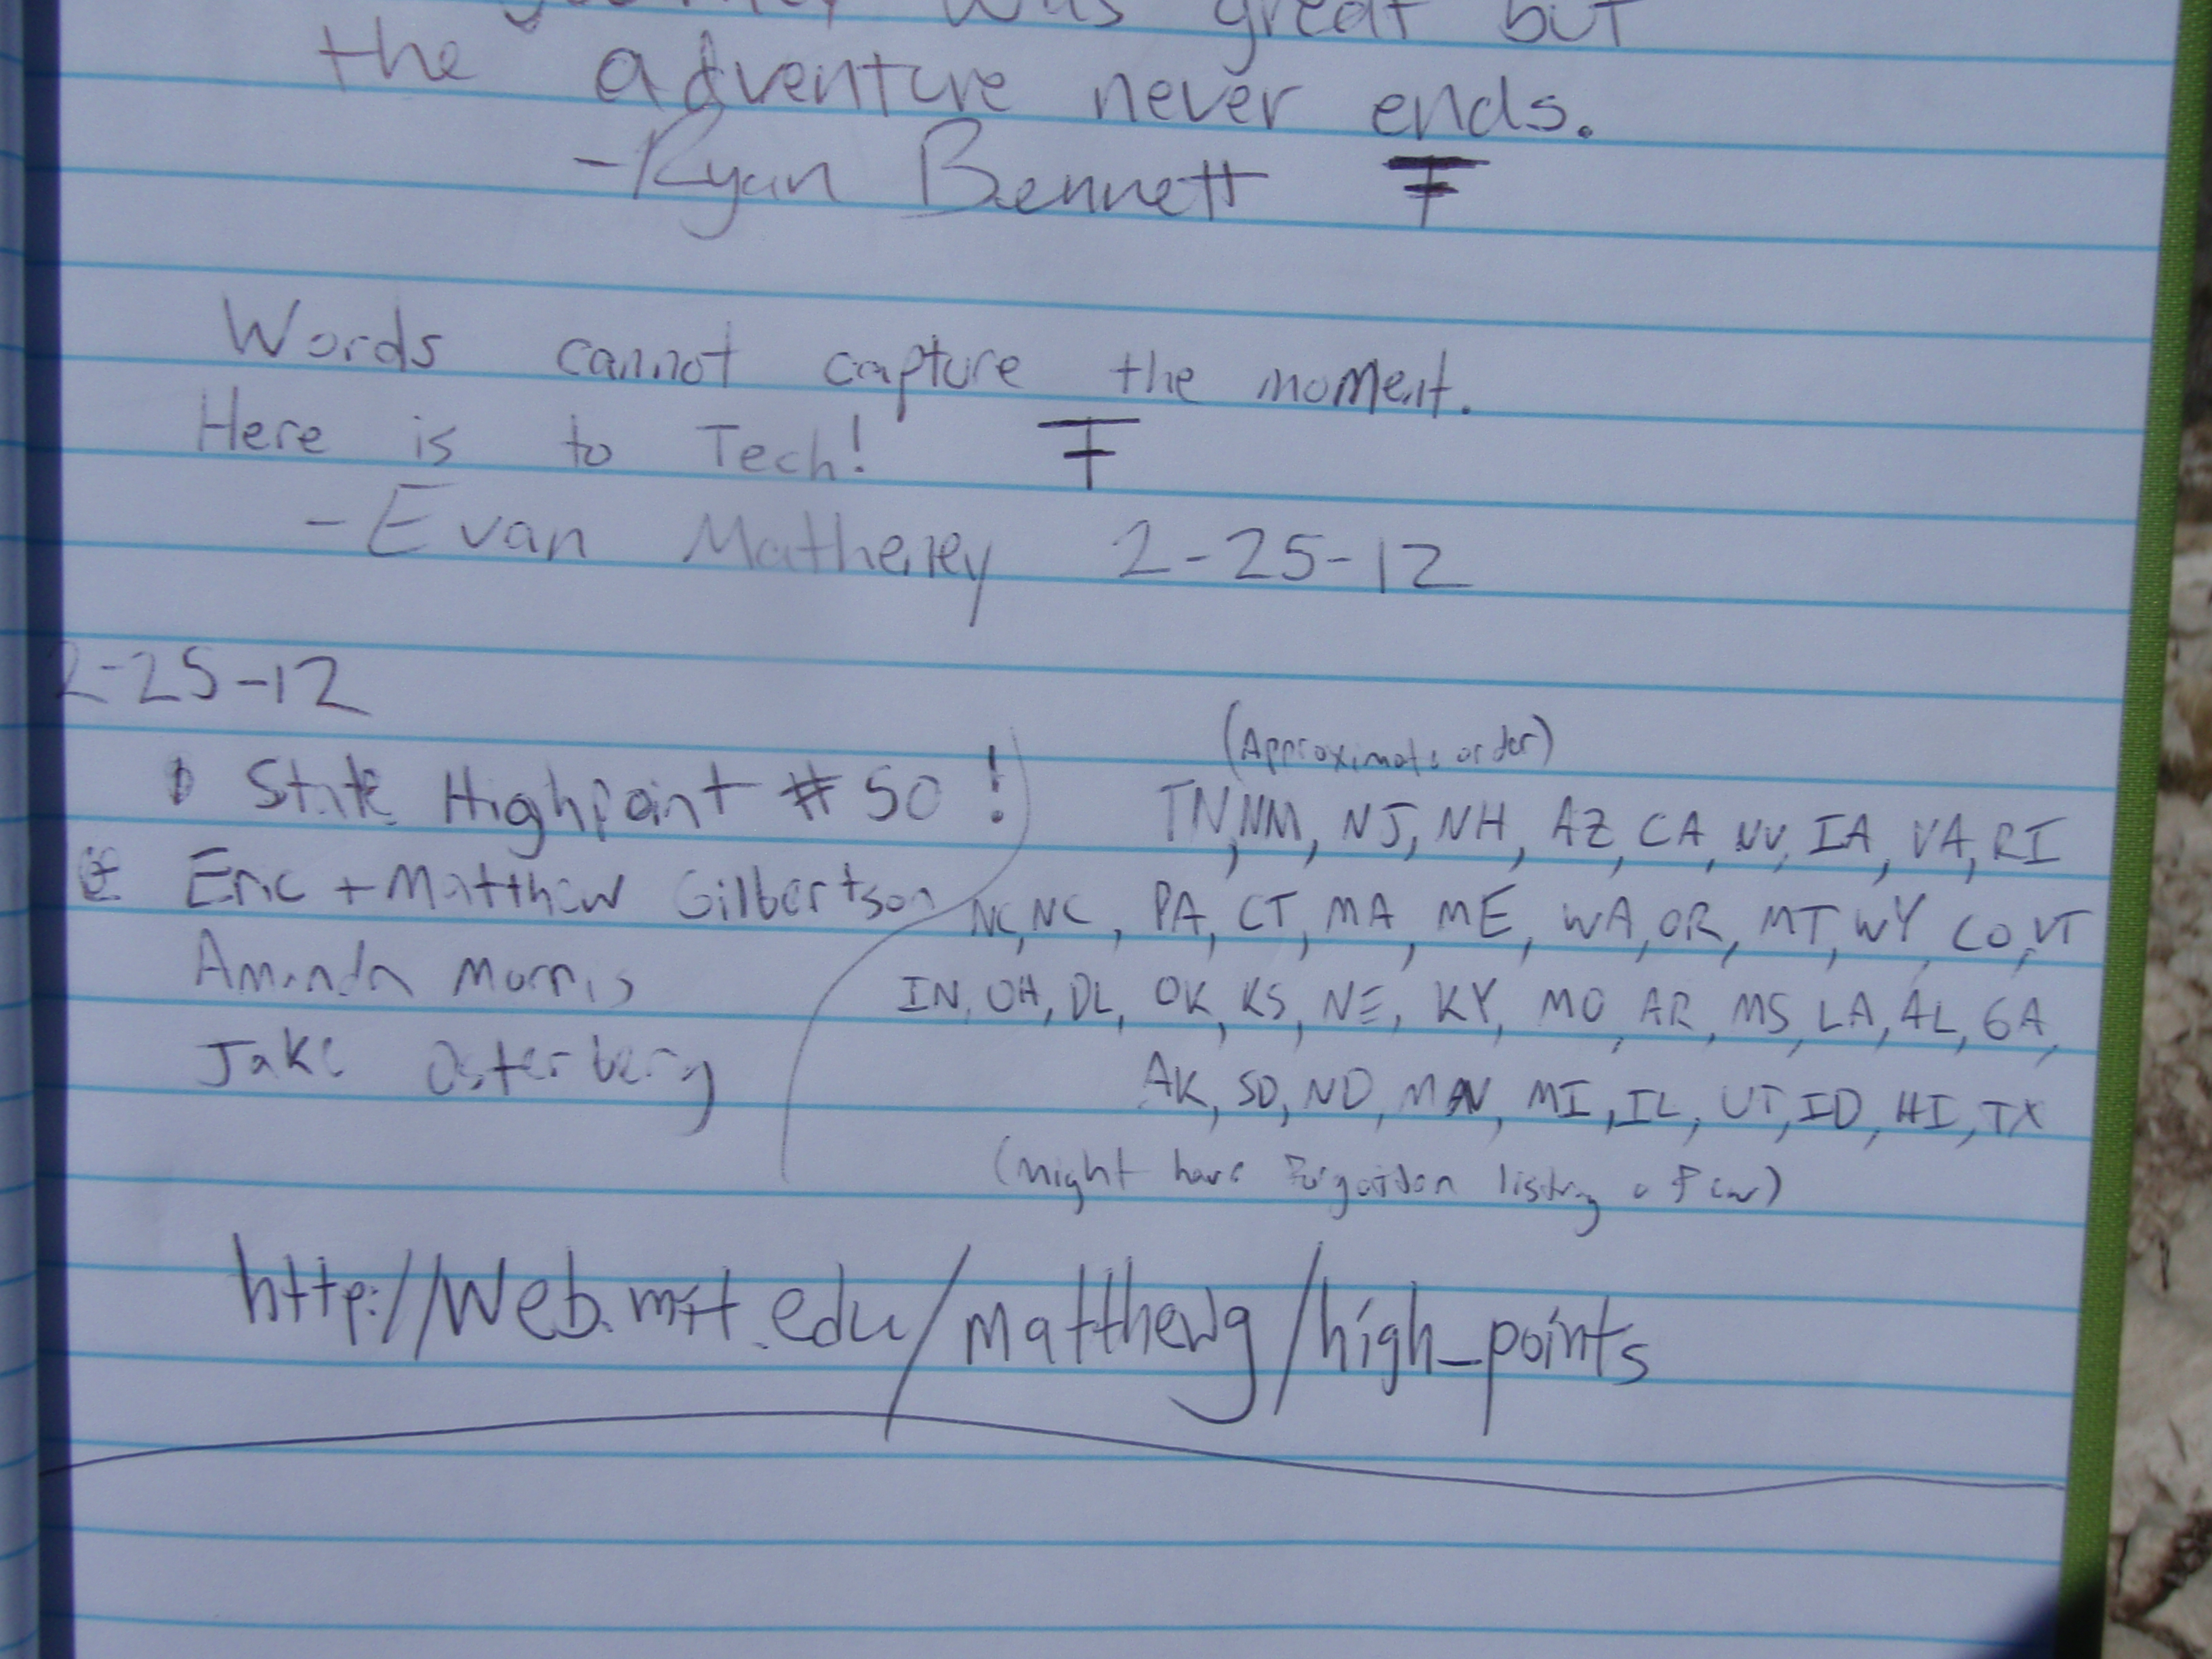 was great but
the adventure never ends.
-Ryan Bennett
Words cannot capture the moment.
Here is to Tech!
-Evan Matheney 2-25-12
2-25-12
State Highpoint #50!
Eric + Matthew Gilbertson
Amanda Morris
Jake Osterberg
(Approximate order)
TN, NM, NJ, NH, AZ, CA, NV, IA, VA, RI
NC, NC, PA, CT, MA, ME, WA, OR, MT, WY, CO, VT
IN, OH, DL, OK, KS, NE, KY, MO, AR, MS, LA, AL, GA,
AK, SD, ND, MN, MI, IL, UT, ID, HI, TX
(might have forgotten listing a few)
http://web.mit.edu/matthewg/high_points